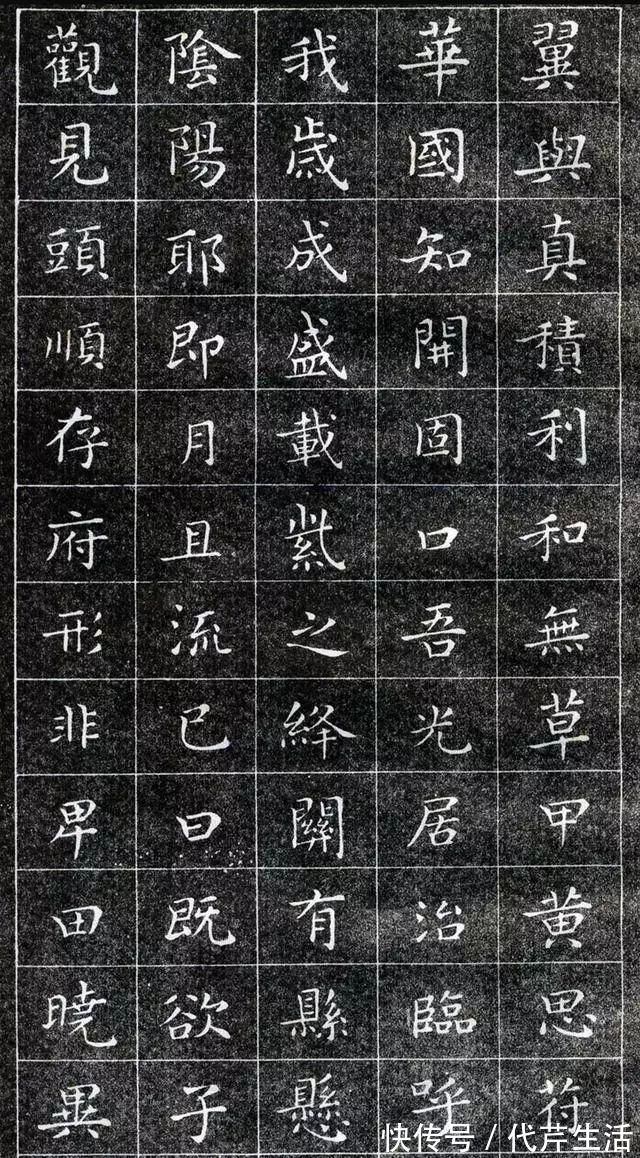 翼與真積利和無草甲黄思苻
華國知開固口吾光居治臨呼
我歲成盛載紫之絳關有縣懸
陰陽耶即月且流已曰既欲子
觀見頭順存府形非卑田曉
快传号/代芹生活